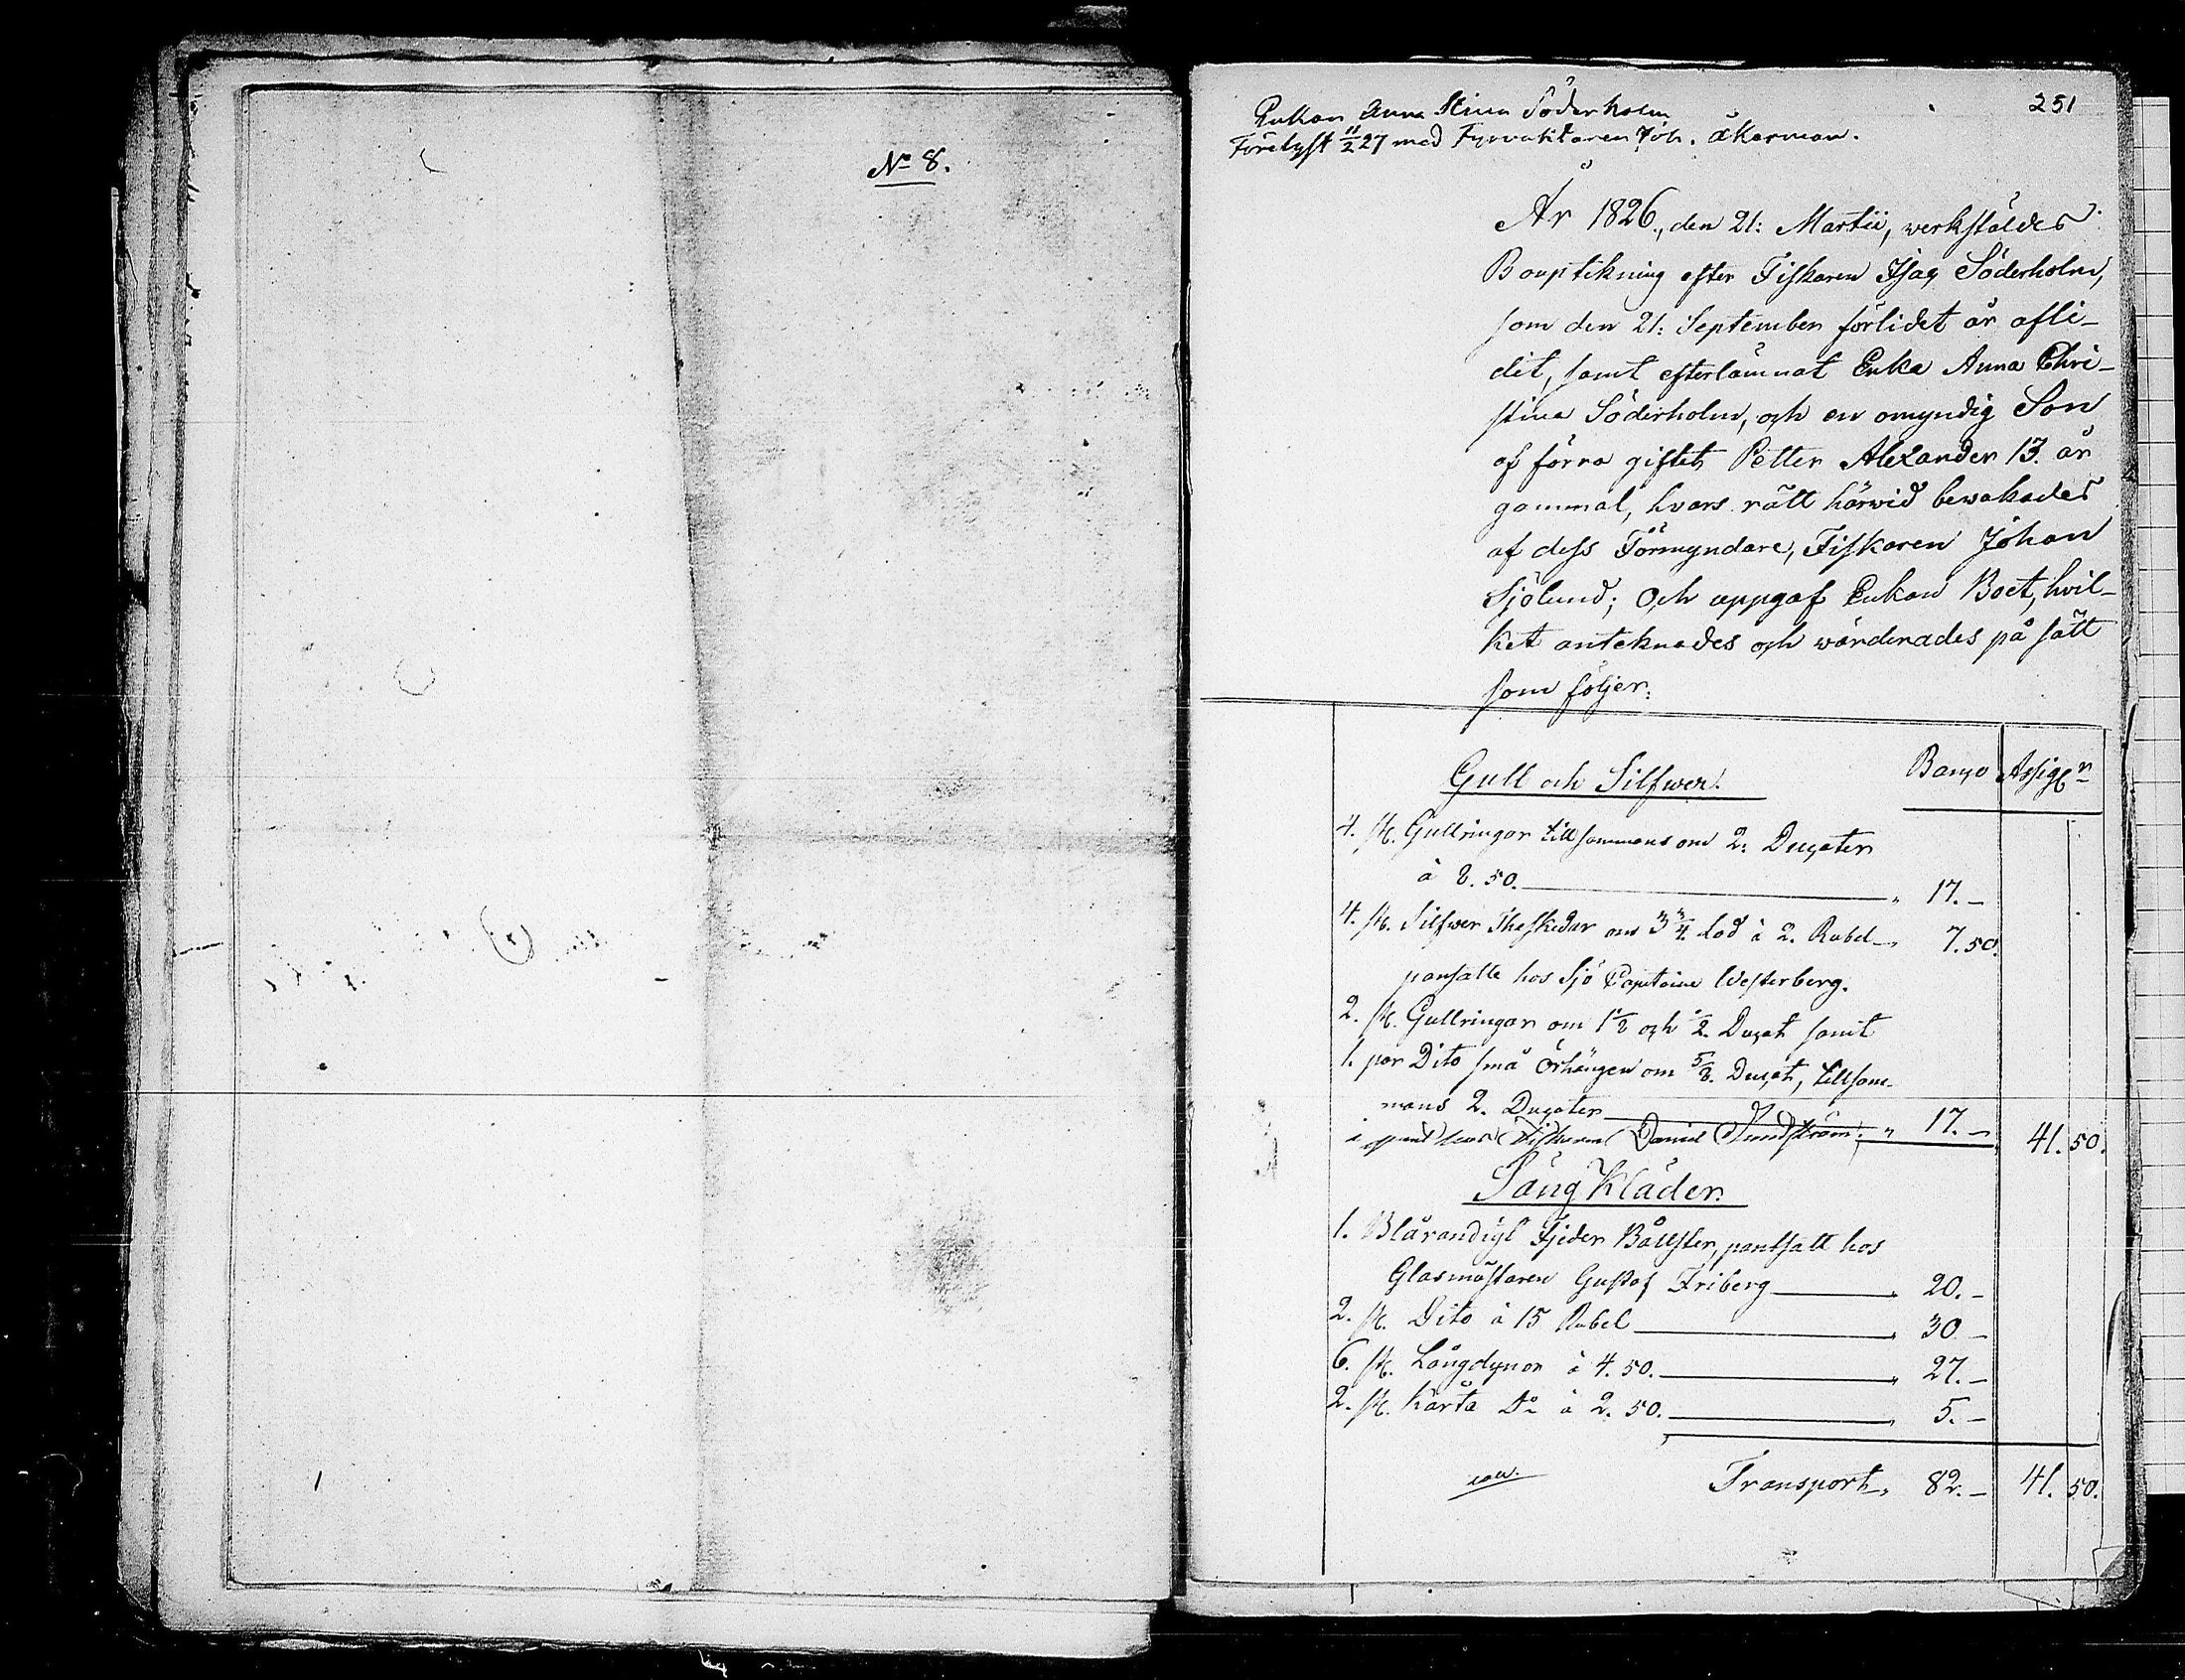 No 8.
251
Enkan Anna Stina Söderholm
Förelyst 11/2 27 med Fyrvaktaren Joh. Åkerman.
År 1826, den 21: Martii, werkstäldes
Bouptekning efter Fiskaren Isac Söderholm,
som den 21: September förlidet år afli-
dit, samt efterlämnat Enka Anna Chri-
stina Söderholm, och en omyndig Son
af förra giftet, Petter Alexander 13. år
gammal, hvars rätt härwid bewakades
af dess Förmyndare, Fiskaren Johan
Sjölund; Och uppgaf Enkan Boet, hvil-
ket anteknades och wärderades på sätt
som följer:
Gull och Silfwer. Banco Assign
4. st. Gullringar tillsammans om 2: Ducater
à 8. 50. " 17. –
4. st. Silfwer Theskedar om 3 3/4. Lod à 2. Rubel " 7. 50.
pansatte hos Sjö Capitaine Westerberg.
2. st. Gullringar om 1 1/8 och 1/2. Ducat samt
1. par Dito små Örhängen om 5/8. Ducat, tillsam-
mans 2. Ducater
i pant hos Fiskaren Daniel Sundström. " 17. – 41. 50.
Säng Kläder.
1. Blårandigt Fjeder Bållster, pantsatt hos
Glasmästaren Gustaf Friberg " 20. –
2. st. Dito à 15 Rubel " 30 –
6. st. Långdynor à 4. 50. " 27. –
2. st. Korta Do à 2. 50. " 5. –
Transport " 82. – 41. 50.